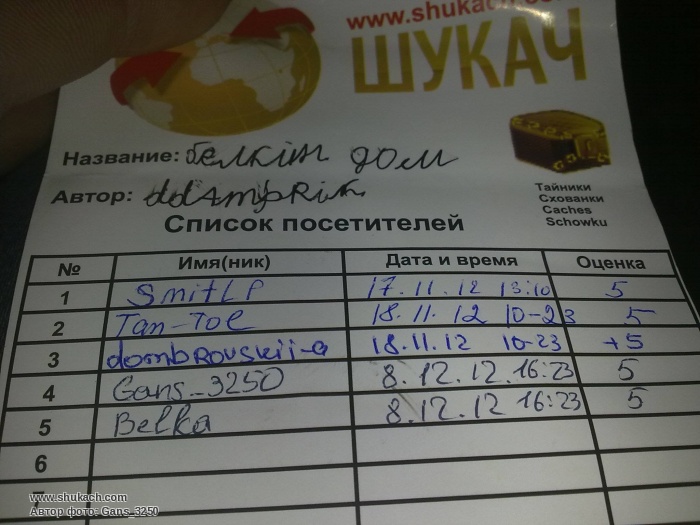 www.shukach.com
ШУКАЧ
Название: белкін дом
Автор:
Тайники
Схованки
Caches
Schowku
Список посетителей
№ Имя(ник) Дата и время Оценка
1 SmitLP 17.11.12 13:10 5
2 Tan-Tol 18.11.12 10-23 5
3 dombrovskii-a 18.11.12 10-23 +5
4 Gans_3250 8.12.12. 16:23 5
5 Belka 8.12.12 16:23 5
6
7
www.shukach.com
Автор фото: Gans_3250